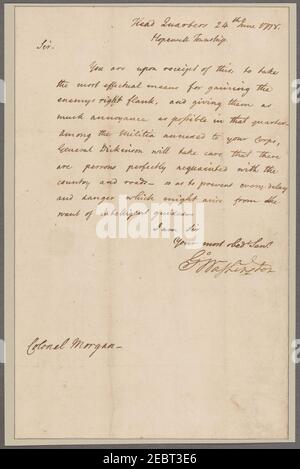 Head Quarters 24th June 1778.
Hopewell Township.
Sir.
You are upon receipt of this, to take
the most effectual means for gaining the
enemys right flank, and giving them as
much annoyance as possible in that quarter.
Among the Militia annexed to your Corps,
General Dickinson will take care, that there
are persons perfectly acquainted with the
country and roads - so as to prevent every delay
and danger which might arise from the
want of intelligent guides.
I am Sir
Your most obedt Servt
Go Washington
Colonel Morgan -
alamy
Image ID: 2EBT3E6
www.alamy.com